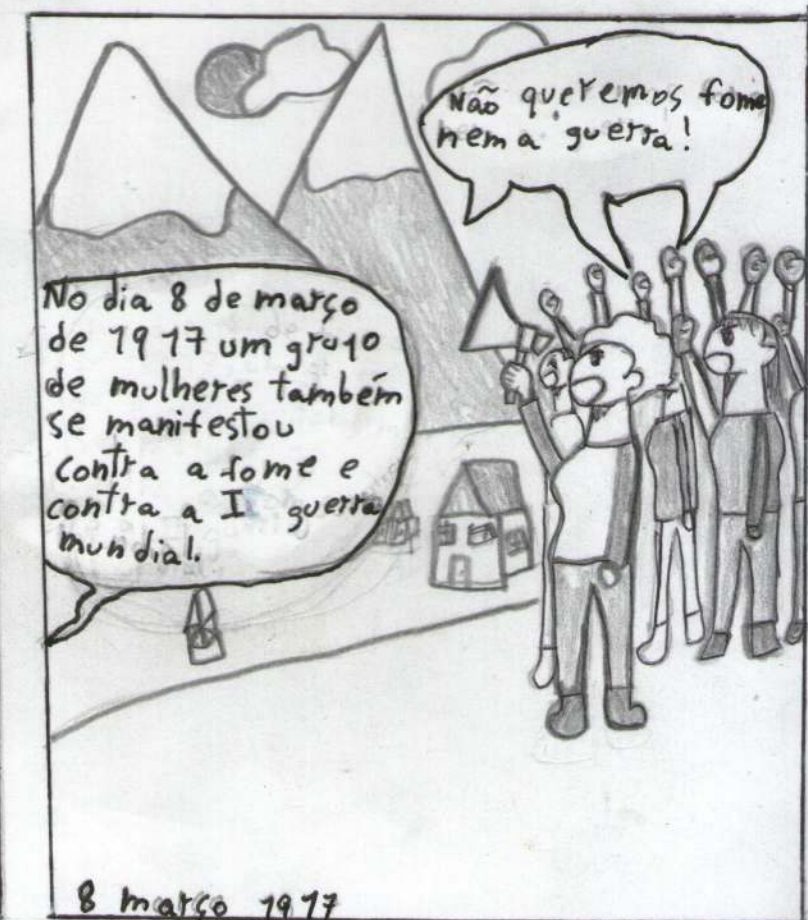 Não queremos fome
nem a guerra!
No dia 8 de março
de 1917 um grupo
de mulheres também
se manifestou
contra a fome e
contra a I guerra
mundial.
8 março 1917